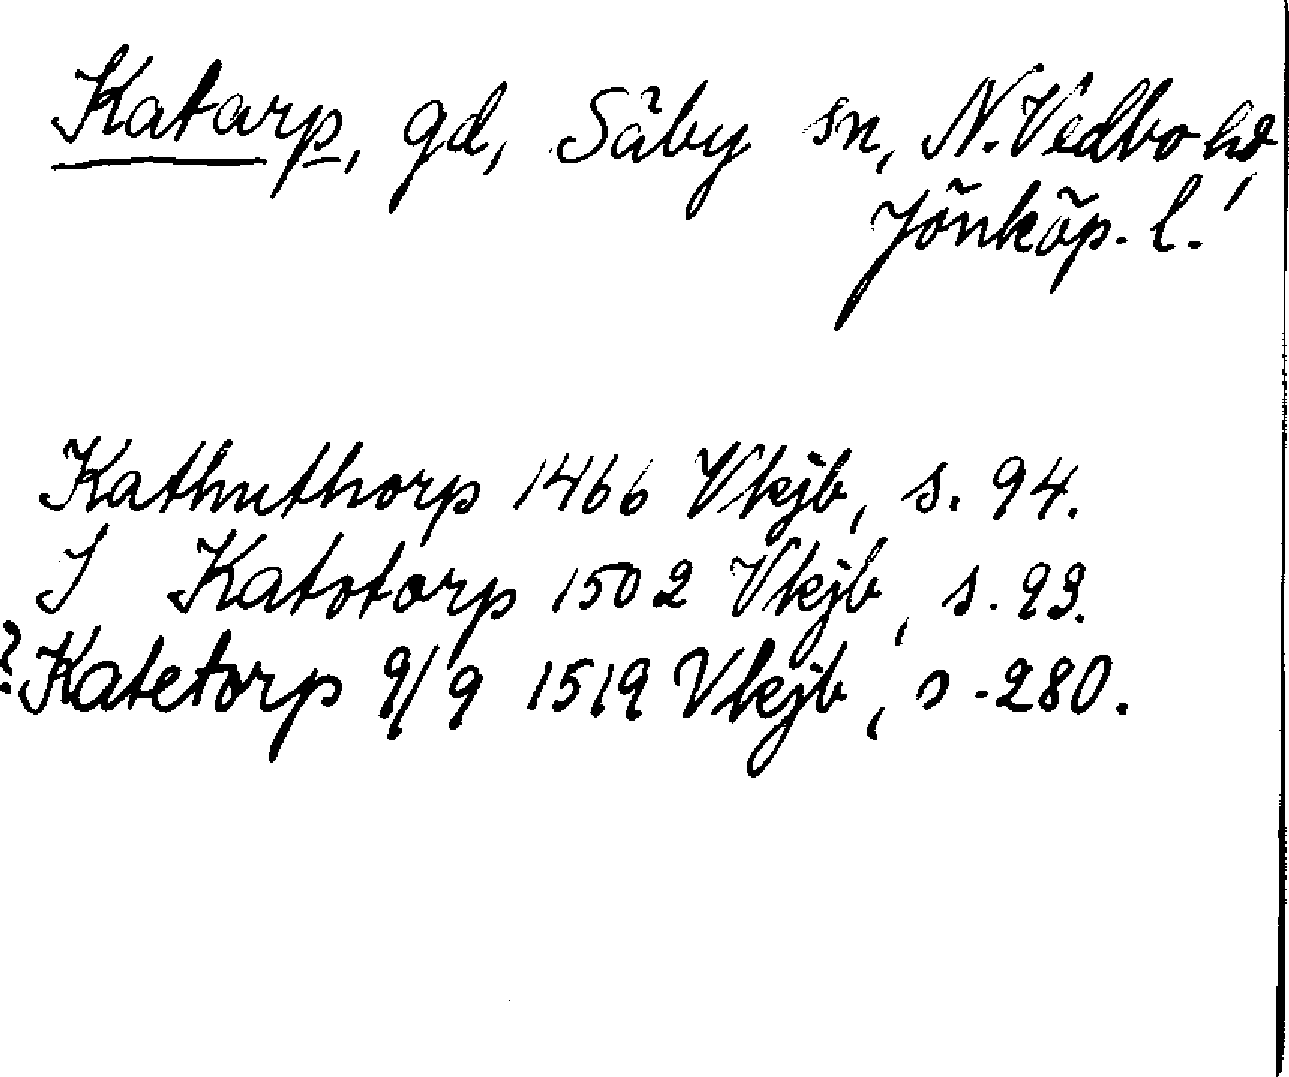 Katarp, gd, Säby sn, N. Vedbo hd,
Jönköp. l.
Kathuthorp 1466 Vkjb, s. 94.
I Katotorp 1502 Vkjb, s. 93.
? Katetorp 9/9 1519 Vkjb, s. 280.